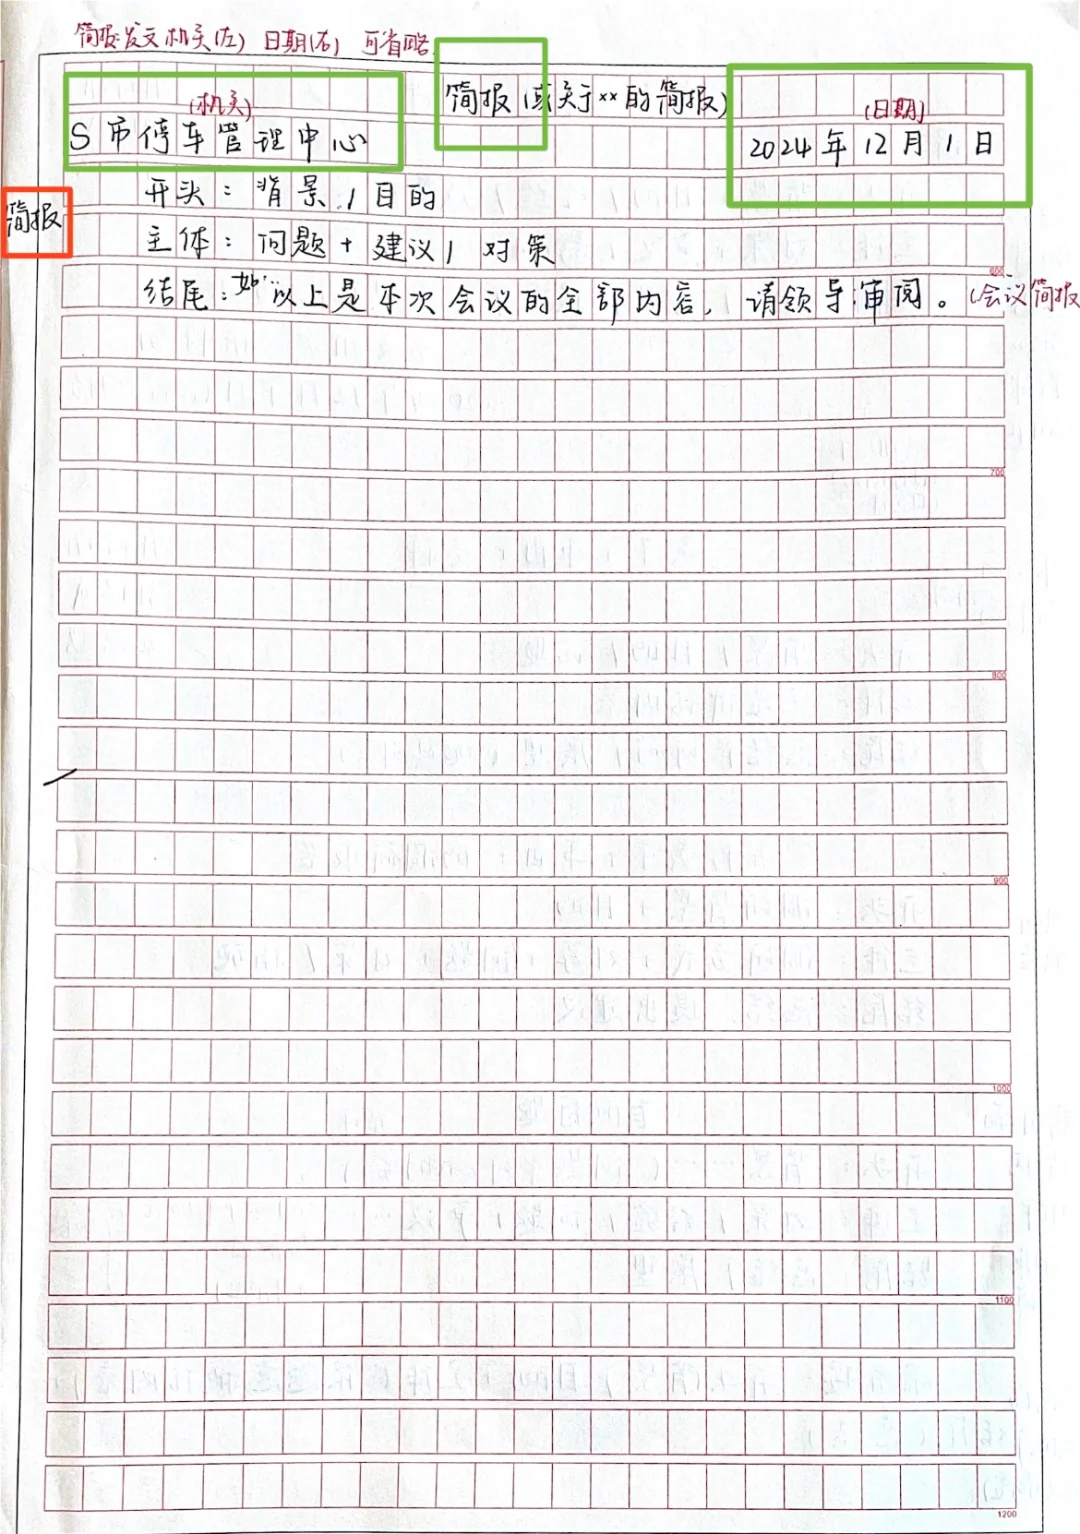 简报:发文机关(左) 日期(右) 可省略
简报(或关于××的简报)
(机关)
(日期)
S市停车管理中心
2024年12月1日
开头:背景/目的
简报
主体:问题+建议/对策
600
结尾:如"以上是本次会议的全部内容,请领导审阅。(会议简报
700
800
900
1000
1100
1200